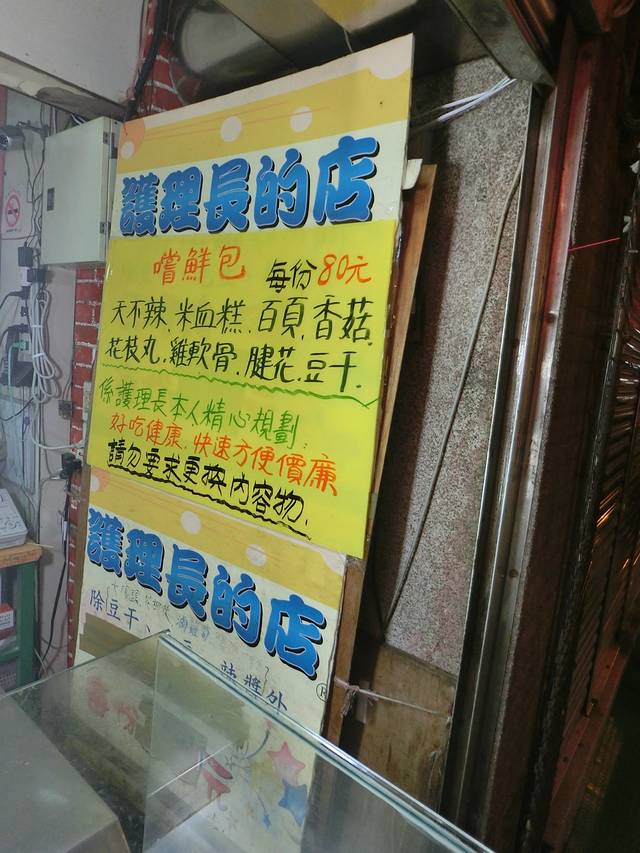 護理長的店
嚐鮮包 每份80元
天不辣.米血糕.百頁.香菇.
花枝丸.雞軟骨.腱花.豆干.
係護理長本人精心規劃:
好吃健康.快速方便價廉
請勿要求更換內容物.
護理長的店
除豆干、
蔬將外